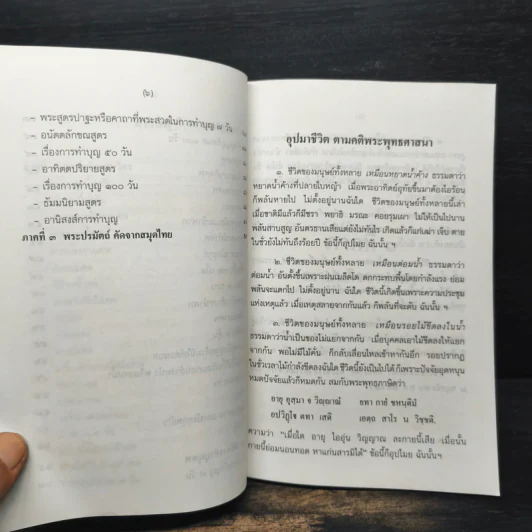 (๖)
– พระสูตรปาฐะหรือคาถาที่พระสวดในการทำบุญ ๗ วัน
– อนัตตลักขณสูตร
– เรื่องการทำบุญ ๕๐ วัน
– อาทิตตปริยายสูตร
– เรื่องการทำบุญ ๑๐๐ วัน
– ธัมมนิยามสูตร
– อานิสงส์การทำบุญ
ภาคที่ ๓ พระปรมัตถ์ คัดจากสมุดไทย
อุปมาชีวิต ตามคติพระพุทธศาสนา
๑. ชีวิตของมนุษย์ทั้งหลาย เหมือนหยาดน้ำค้าง ธรรมดาว่า
หยาดน้ำค้างที่ปลายใบหญ้า เมื่อพระอาทิตย์อุทัยขึ้นมาต้องไอร้อน
ก็พลันหายไป ไม่ตั้งอยู่นานฉันใด ชีวิตของมนุษย์ทั้งหลายนี้เล่า
เมื่อชาติมีแล้วก็มีชรา พยาธิ มรณะ คอยรุมเผา ไม่ให้เป็นไปนาน
พลันสาบสูญ อันตรธานเสียแต่ยังไม่ทันไร เกิดแล้วก็แก่เฒ่า เจ็บ ตาย
ในชั่วยังไม่ทันถึงร้อยปี ข้อนี้ก็อุปไมย ฉันนั้น ฯ
๒. ชีวิตของมนุษย์ทั้งหลาย เหมือนต่อมน้ำ ธรรมดาว่า
ต่อมน้ำ อันตั้งขึ้นเพราะฝนเมล็ดโต ตกกระทบพื้นโดยกำลังแรง ย่อม
พลันจะแตกไป ไม่ตั้งอยู่นาน ฉันใด ชีวิตนี้เกิดขึ้นเพราะความประชุม
แห่งเหตุแล้ว เมื่อเหตุสลายจากกันแล้ว ก็พลันที่จะดับ ฉันนั้น ฯ
๓. ชีวิตของมนุษย์ทั้งหลาย เหมือนรอยไม้ขีดลงในน้ำ
ธรรมดาว่าน้ำเป็นของไม่แยกจากกัน เมื่อบุคคลเอาไม้ขีดลงให้แยก
จากกัน พอไม่มีไม้คั่น ก็กลับเลื่อนไหลเข้าหากันอีก รอยปรากฏ
ในชั่วเวลาไม้กำลังขีดลงฉันใด ชีวิตนี้ยังเป็นไปได้ ก็เพราะปัจจัยอุดหนุน
หมดปัจจัยแล้วก็หมดกัน สมกับพระพุทธภาษิตว่า
อายุ อุสฺมา จ วิญฺญาณํ ยทา กายํ ชหนฺติมํ
อปวิฏฺโฐ ตทา เสติ เอตฺถ สาโร น วิชฺชติ.
ความว่า "เมื่อใด อายุ ไออุ่น วิญญาณ ละกายนี้เสีย เมื่อนั้น
กายนี้ย่อมนอนทอด หาแก่นสารมิได้" ข้อนี้ก็อุปไมย ฉันนั้นฯ